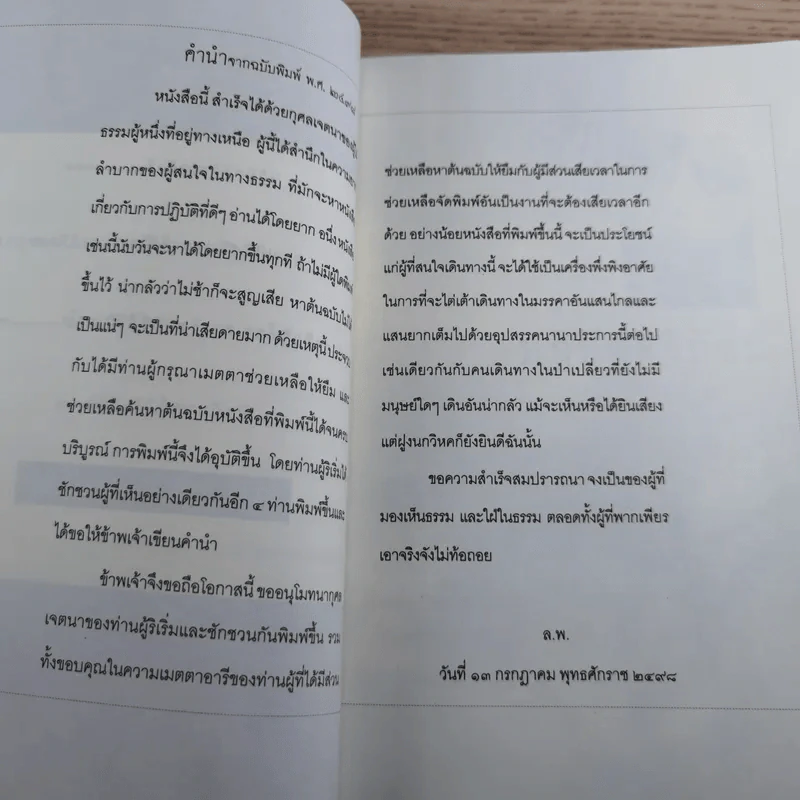 คำนำจากฉบับพิมพ์ พ.ศ. ๒๔๙๘
หนังสือนี้ สำเร็จได้ด้วยกุศลเจตนาของ
ธรรมผู้หนึ่งที่อยู่ทางเหนือ ผู้นี้ได้สำนึกในความ
ลำบากของผู้สนใจในทางธรรม ที่มักจะหาหนังสือ
เกี่ยวกับการปฏิบัติที่ดีๆ อ่านได้โดยยาก อนึ่ง หนังสือ
เช่นนี้นับวันจะหาได้โดยยากขึ้นทุกที ถ้าไม่มีผู้ใด
ขึ้นไว้ น่ากลัวว่าไม่ช้าก็จะสูญเสีย หาต้นฉบับไม่ได้
เป็นแน่ๆ จะเป็นที่น่าเสียดายมาก ด้วยเหตุนี้ ประจวบ
กับได้มีท่านผู้กรุณาเมตตาช่วยเหลือให้ยืม และ
ช่วยเหลือค้นหาต้นฉบับหนังสือที่พิมพ์นี้ได้จนครบ
บริบูรณ์ การพิมพ์นี้จึงได้อุบัติขึ้น โดยท่านผู้ริเริ่มได้
ชักชวนผู้ที่เห็นอย่างเดียวกันอีก ๔ ท่านพิมพ์ขึ้นและ
ได้ขอให้ข้าพเจ้าเขียนคำนำ
ข้าพเจ้าจึงขอถือโอกาสนี้ ขออนุโมทนากุศล
เจตนาของท่านผู้ริเริ่มและชักชวนกันพิมพ์ขึ้น รวม
ทั้งขอบคุณในความเมตตาอารีของท่านผู้ที่ได้มีส่วน
ช่วยเหลือหาต้นฉบับให้ยืมกับผู้มีส่วนเสียเวลาในการ
ช่วยเหลือจัดพิมพ์อันเป็นงานที่จะต้องเสียเวลาอีก
ด้วย อย่างน้อยหนังสือที่พิมพ์ขึ้นนี้ จะเป็นประโยชน์
แก่ผู้ที่สนใจเดินทางนี้ จะได้ใช้เป็นเครื่องพึ่งพิงอาศัย
ในการที่จะไต่เต้าเดินทางในมรรคาอันแสนไกลและ
แสนยากเต็มไปด้วยอุปสรรคนานาประการนี้ต่อไป
เช่นเดียวกันกับคนเดินทางในป่าเปลี่ยวที่ยังไม่มี
มนุษย์ใดๆ เดินอันน่ากลัว แม้จะเห็นหรือได้ยินเสียง
แต่ฝูงนกวิหคก็ยังยินดีฉันนั้น
ขอความสำเร็จสมปรารถนา จงเป็นของผู้ที่
มองเห็นธรรม และใฝ่ในธรรม ตลอดทั้งผู้ที่พากเพียร
เอาจริงจังไม่ท้อถอย
ล.พ.
วันที่ ๑๓ กรกฎาคม พุทธศักราช ๒๔๙๘